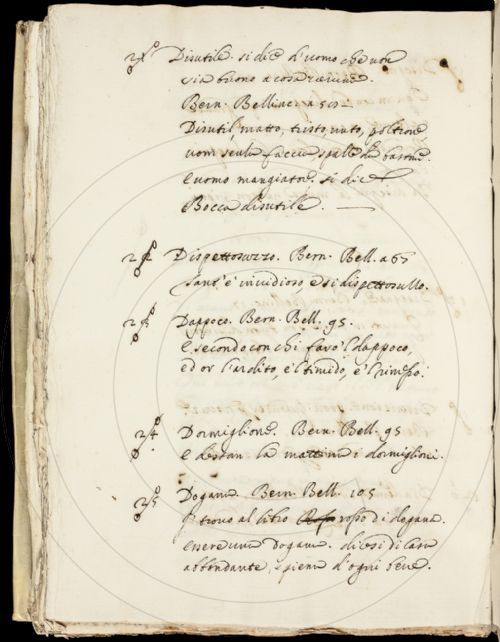 21 Disutile. si dice d'uomo che non
sia buono a cosa
Bern. Bellincr. a 50
Disutil, matto, tristo, unto, poltrone,
uom senza faccia spalle da bastone.
e uomo mangiatore. si dice
Bocca disutile.
22 Dispettosuzzo. Bern. Bell. a 67
sans' è invidioso, e sì dispettosullo.
23 Dappoco. Bern. Bell. 95.
e secondo con chi farò 'l dappoco,
ed or l'ardito, e 'l timido, e 'l rimesso.
24 Dormiglione. Bern. Bell. 95
e destan la mattina i dormiglioni.
25 Dogana. Bern. Bell. 105
trovo al libro rosso di dogana.
essere una Dogana. dicesi di casa
abbondante, e piena d'ogni bene.